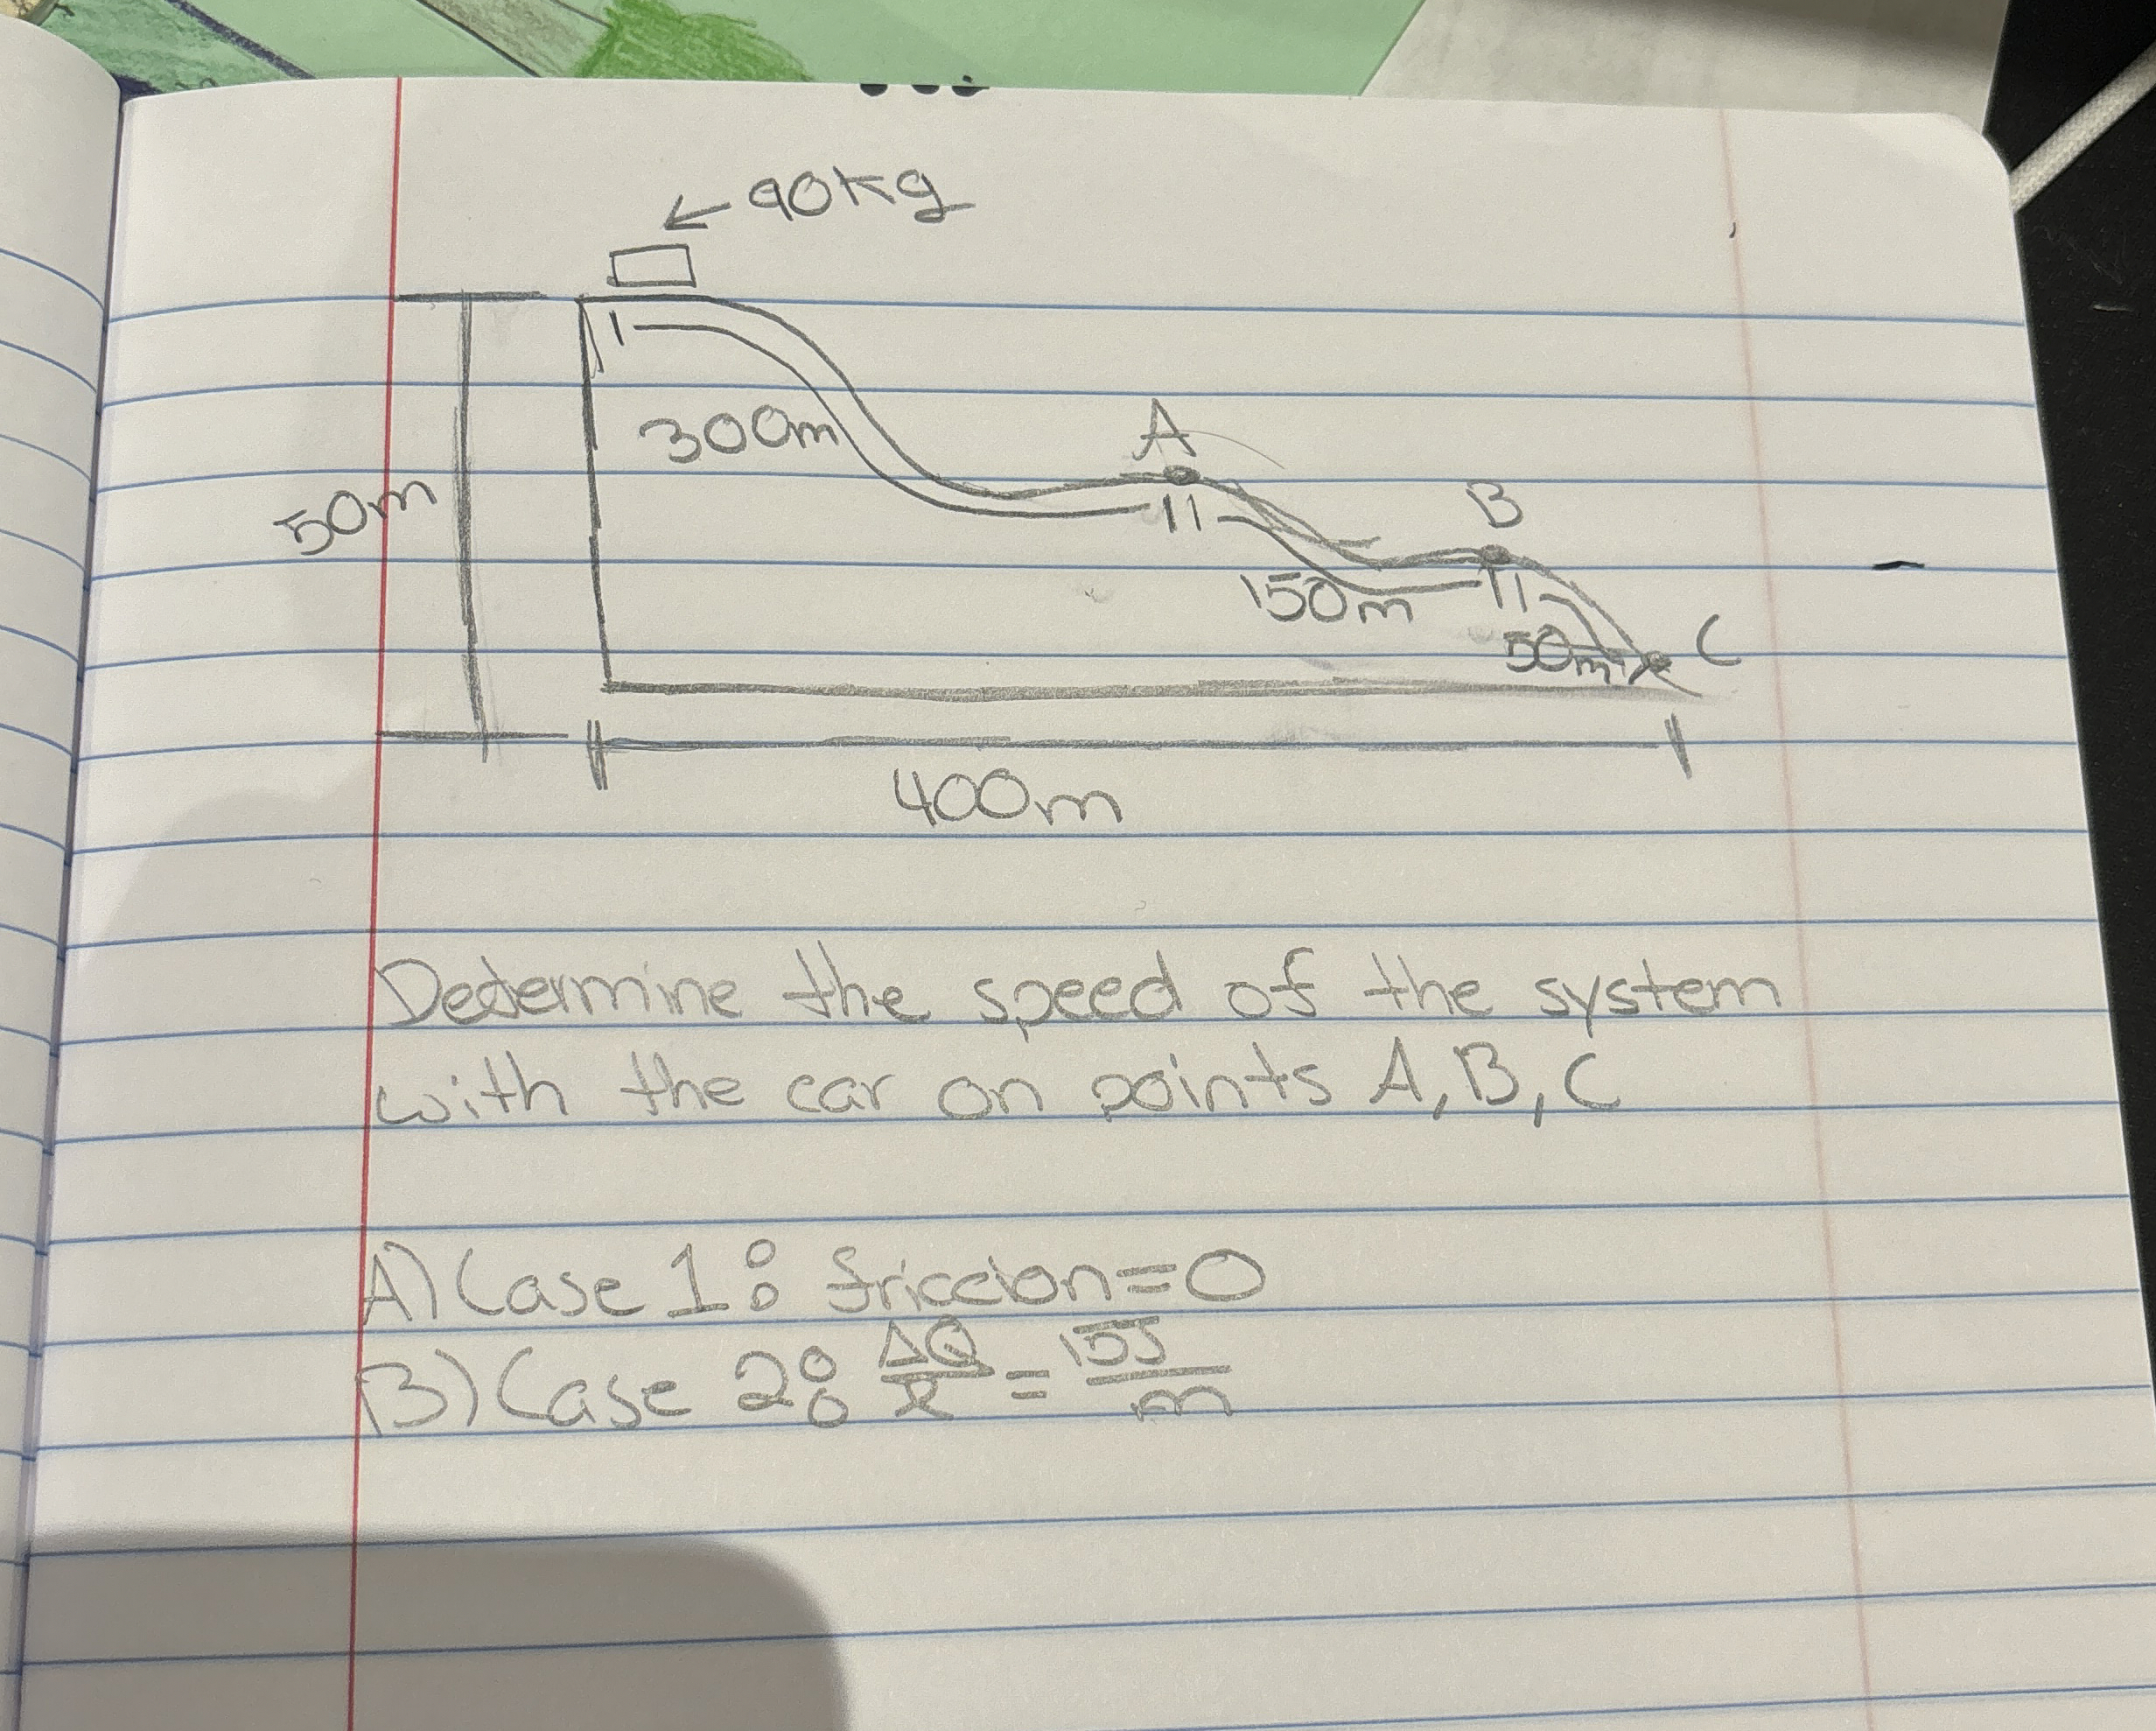 90kg
300m
A
50m
B
150m
50m
C
400m
Determine the speed of the system
with the car on points A, B, C
A) Case 1: friccion=0
B) Case 2: ΔQ/x = 15J/m